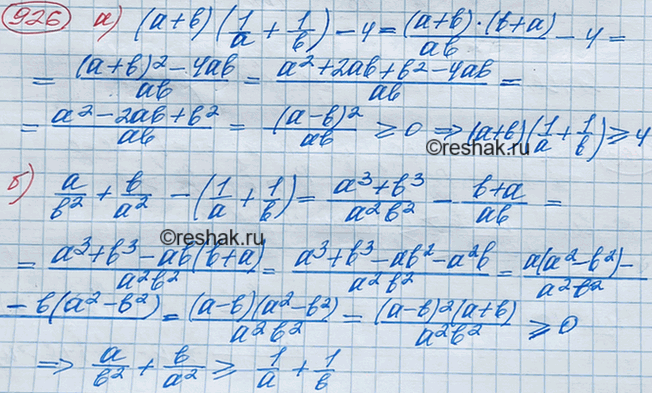 926 а) (a+b)(1/a + 1/b) - 4 = (a+b)·(b+a)/ab - 4 =
= (a+b)² - 4ab/ab = a² + 2ab + b² - 4ab/ab =
= a² - 2ab + b²/ab = (a-b)²/ab ≥ 0 ⇒ (a+b)(1/a + 1/b) ≥ 4
©reshak.ru
б) a/b² + b/a² - (1/a + 1/b) = a³ + b³/a²b² - b+a/ab =
©reshak.ru
= a³ + b³ - ab(b+a)/a²b² = a³ + b³ - ab² - a²b/a²b² = a(a² - b²) -/a²b²
- b(a² - b²) = (a-b)(a² - b²)/a²b² = (a-b)²(a+b)/a²b² ≥ 0
⇒ a/b² + b/a² ≥ 1/a + 1/b